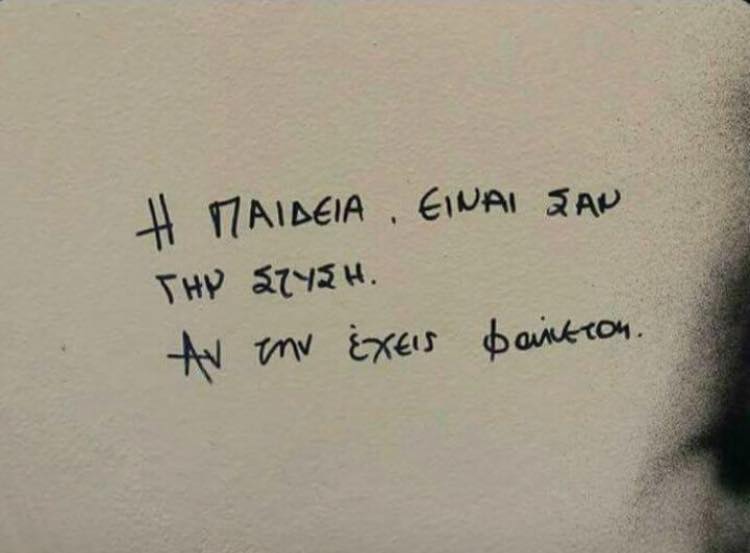 Η ΠΑΙΔΕΙΑ, ΕΙΝΑΙ ΣΑΝ
ΤΗΝ ΣΤΥΣΗ.
Αν την έχεις φαίνεται.